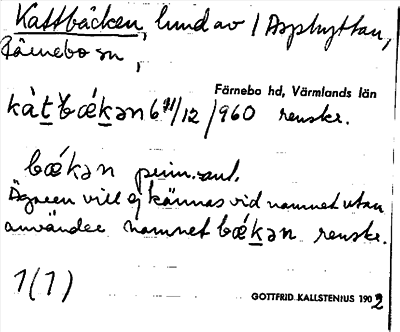 Kattbäcken, lund av 1 Asphyttan,
Färnebo sn,
Färnebo hd, Värmlands län
kàt`bǽkən 6 11/12 1960 renskr.
bǽkən prim. ant.
Ägaren vill ej kännas vid namnet utan
använder namnet bǽkən renskr.
1(1)
GOTTFRID KALLSTENIUS 1902